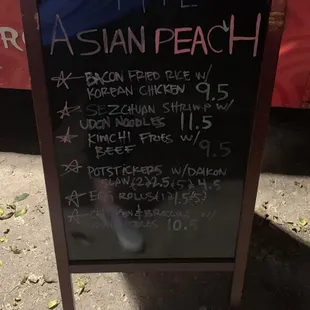 THE
ASIAN PEACH
BACON FRIED RICE W/
KOREAN CHICKEN 9.5
SEZCHUAN SHRIMP W/
UDON NOODLES 11.5
KIMCHI FRIES W/
BEEF 9.5
POTSTICKERS W/DAIKON
SLAW (2)2.5 (5)4.5
EGG ROLLS (1)
W/
10.5